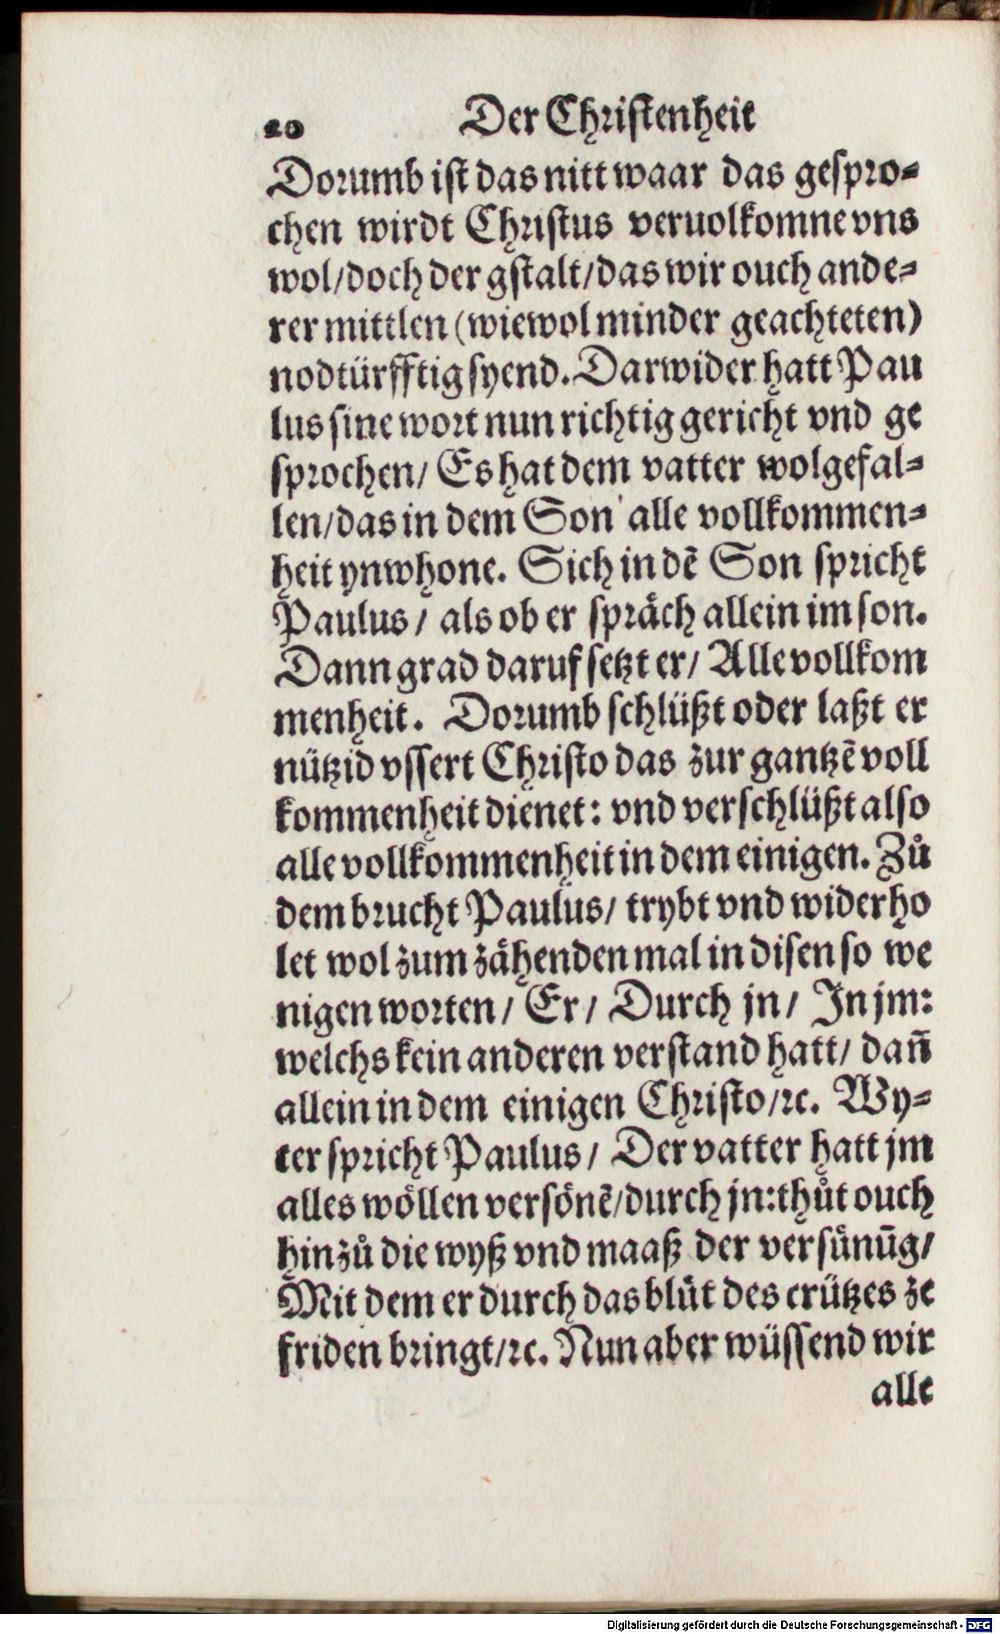 20 Der Christenheit
Dorumb ist das nitt waar das gespro-
chen wirdt Christus veruolkomne vns
wol/doch der gstalt/das wir ouch ande-
rer mittlen (wiewol minder geachteten)
nodtürfftig syend. Darwider hatt Pau
lus sine wort nun richtig gericht vnd ge
sprochen/ Es hat dem vatter wolgefal-
len/das in dem Son alle vollkommen-
heit ynwhone. Sich in dē Son spricht
Paulus/ als ob er spräch allein im son.
Dann grad daruf setzt er/ Alle vollkom
menheit. Dorumb schlüßt oder laßt er
nützid vssert Christo das zur gantzē voll
kommenheit dienet: vnd verschlüßt also
alle vollkommenheit in dem einigen. Zů
dem brucht Paulus/ trybt vnd widerho
let wol zum zähenden mal in disen so we
nigen worten/ Er/ Durch jn/ In jm:
welchs kein anderen verstand hatt/ dañ
allein in dem einigen Christo/ꝛc. Wy-
ter spricht Paulus/ Der vatter hatt jm
alles wöllen versönē/durch jn:thůt ouch
hinzů die wyß vnd maaß der versünūg/
Mit dem er durch das blůt des crützes ze
friden bringt/ꝛc. Nun aber wüssend wir
alle
Digitalisierung gefördert durch die Deutsche Forschungsgemeinschaft - DFG